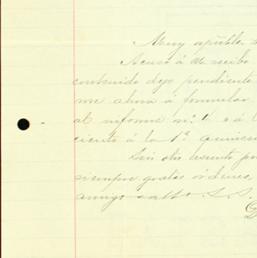 Muy apible.
Acuso á Ud. recibo
contenido dejo pendiente
me ahora á formular
al informe nº 4 o á l
ciente á la 1ª quince
Sin otro asunto po
siempre gratas órdenes
amigo S. S.